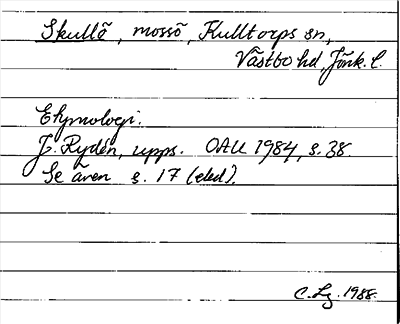 Skullö, mossö, Kulltorps sn,
Västbo hd, Jönk. l.
Etymologi.
J. Rydén, upps. OAU 1984, s. 38.
Se även s. 17 (eled).
C. Lg. 1988.